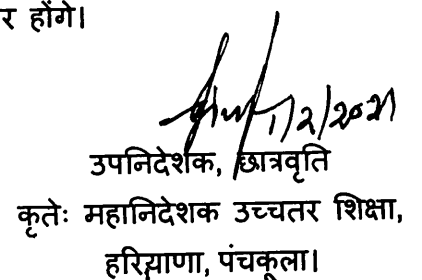 र होंगे।
1/2/2021
उपनिदेशक, छात्रवृति
कृतेः महानिदेशक उच्चतर शिक्षा,
हरियाणा, पंचकूला।